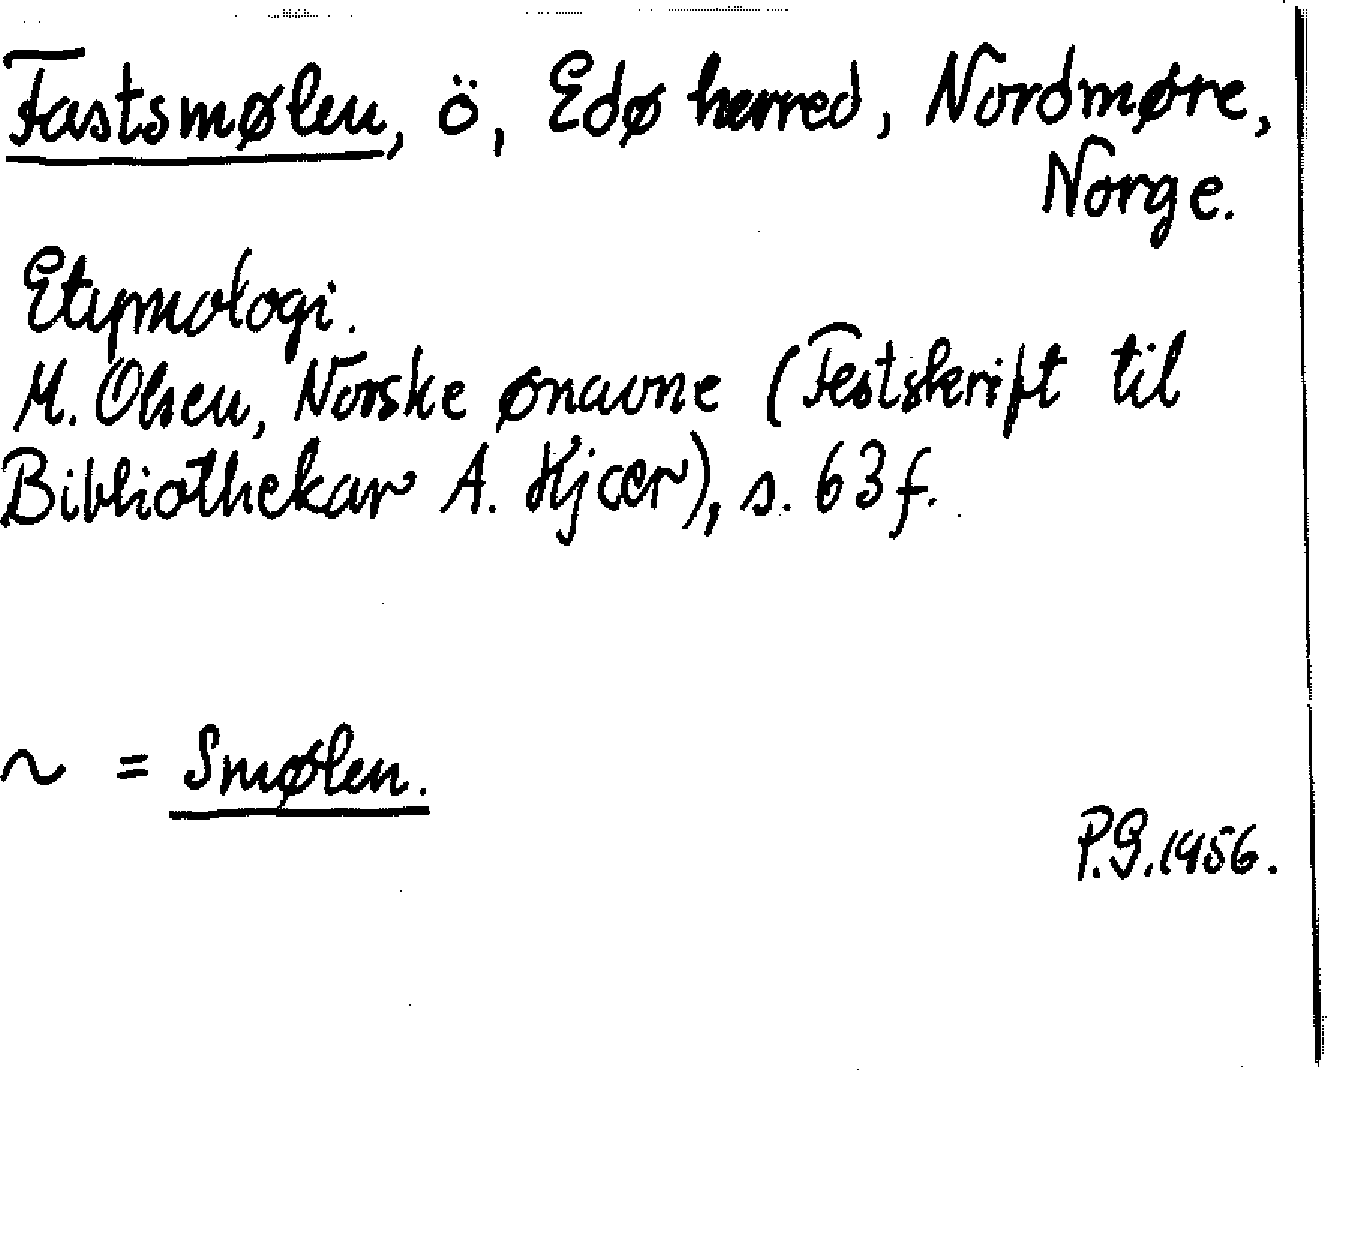 Fastsmølen, ö, Edø herred, Nordmøre,
Norge.
Etymologi.
M. Olsen, Norske ønavne (Festskrift til
Bibliothekar A. Kjær), s. 63 f.
~ = Smølen.
P.G. 1956.